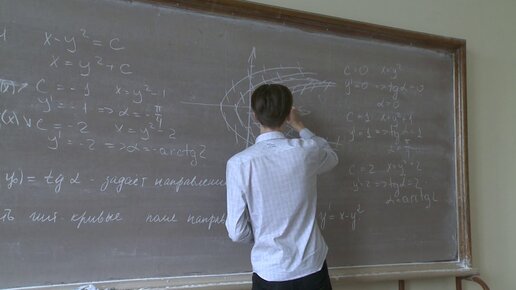 x-y²=C
x=y²+C
C=-1 x=y²-1
y'=-1 => α=-π/4
C=-2 x=y²-2
y'=-2 => α=-arctg2
y₀)=tg α - задаёт направлени
кривые поле направ
y'=x-y²
C=0 x=y²
y'=0 => tgα=0
α=0
C=1 x=y²+1
y'=1 => tgα=1
C=2 x=y²
y'=2 => tgα=2
α=arctg2